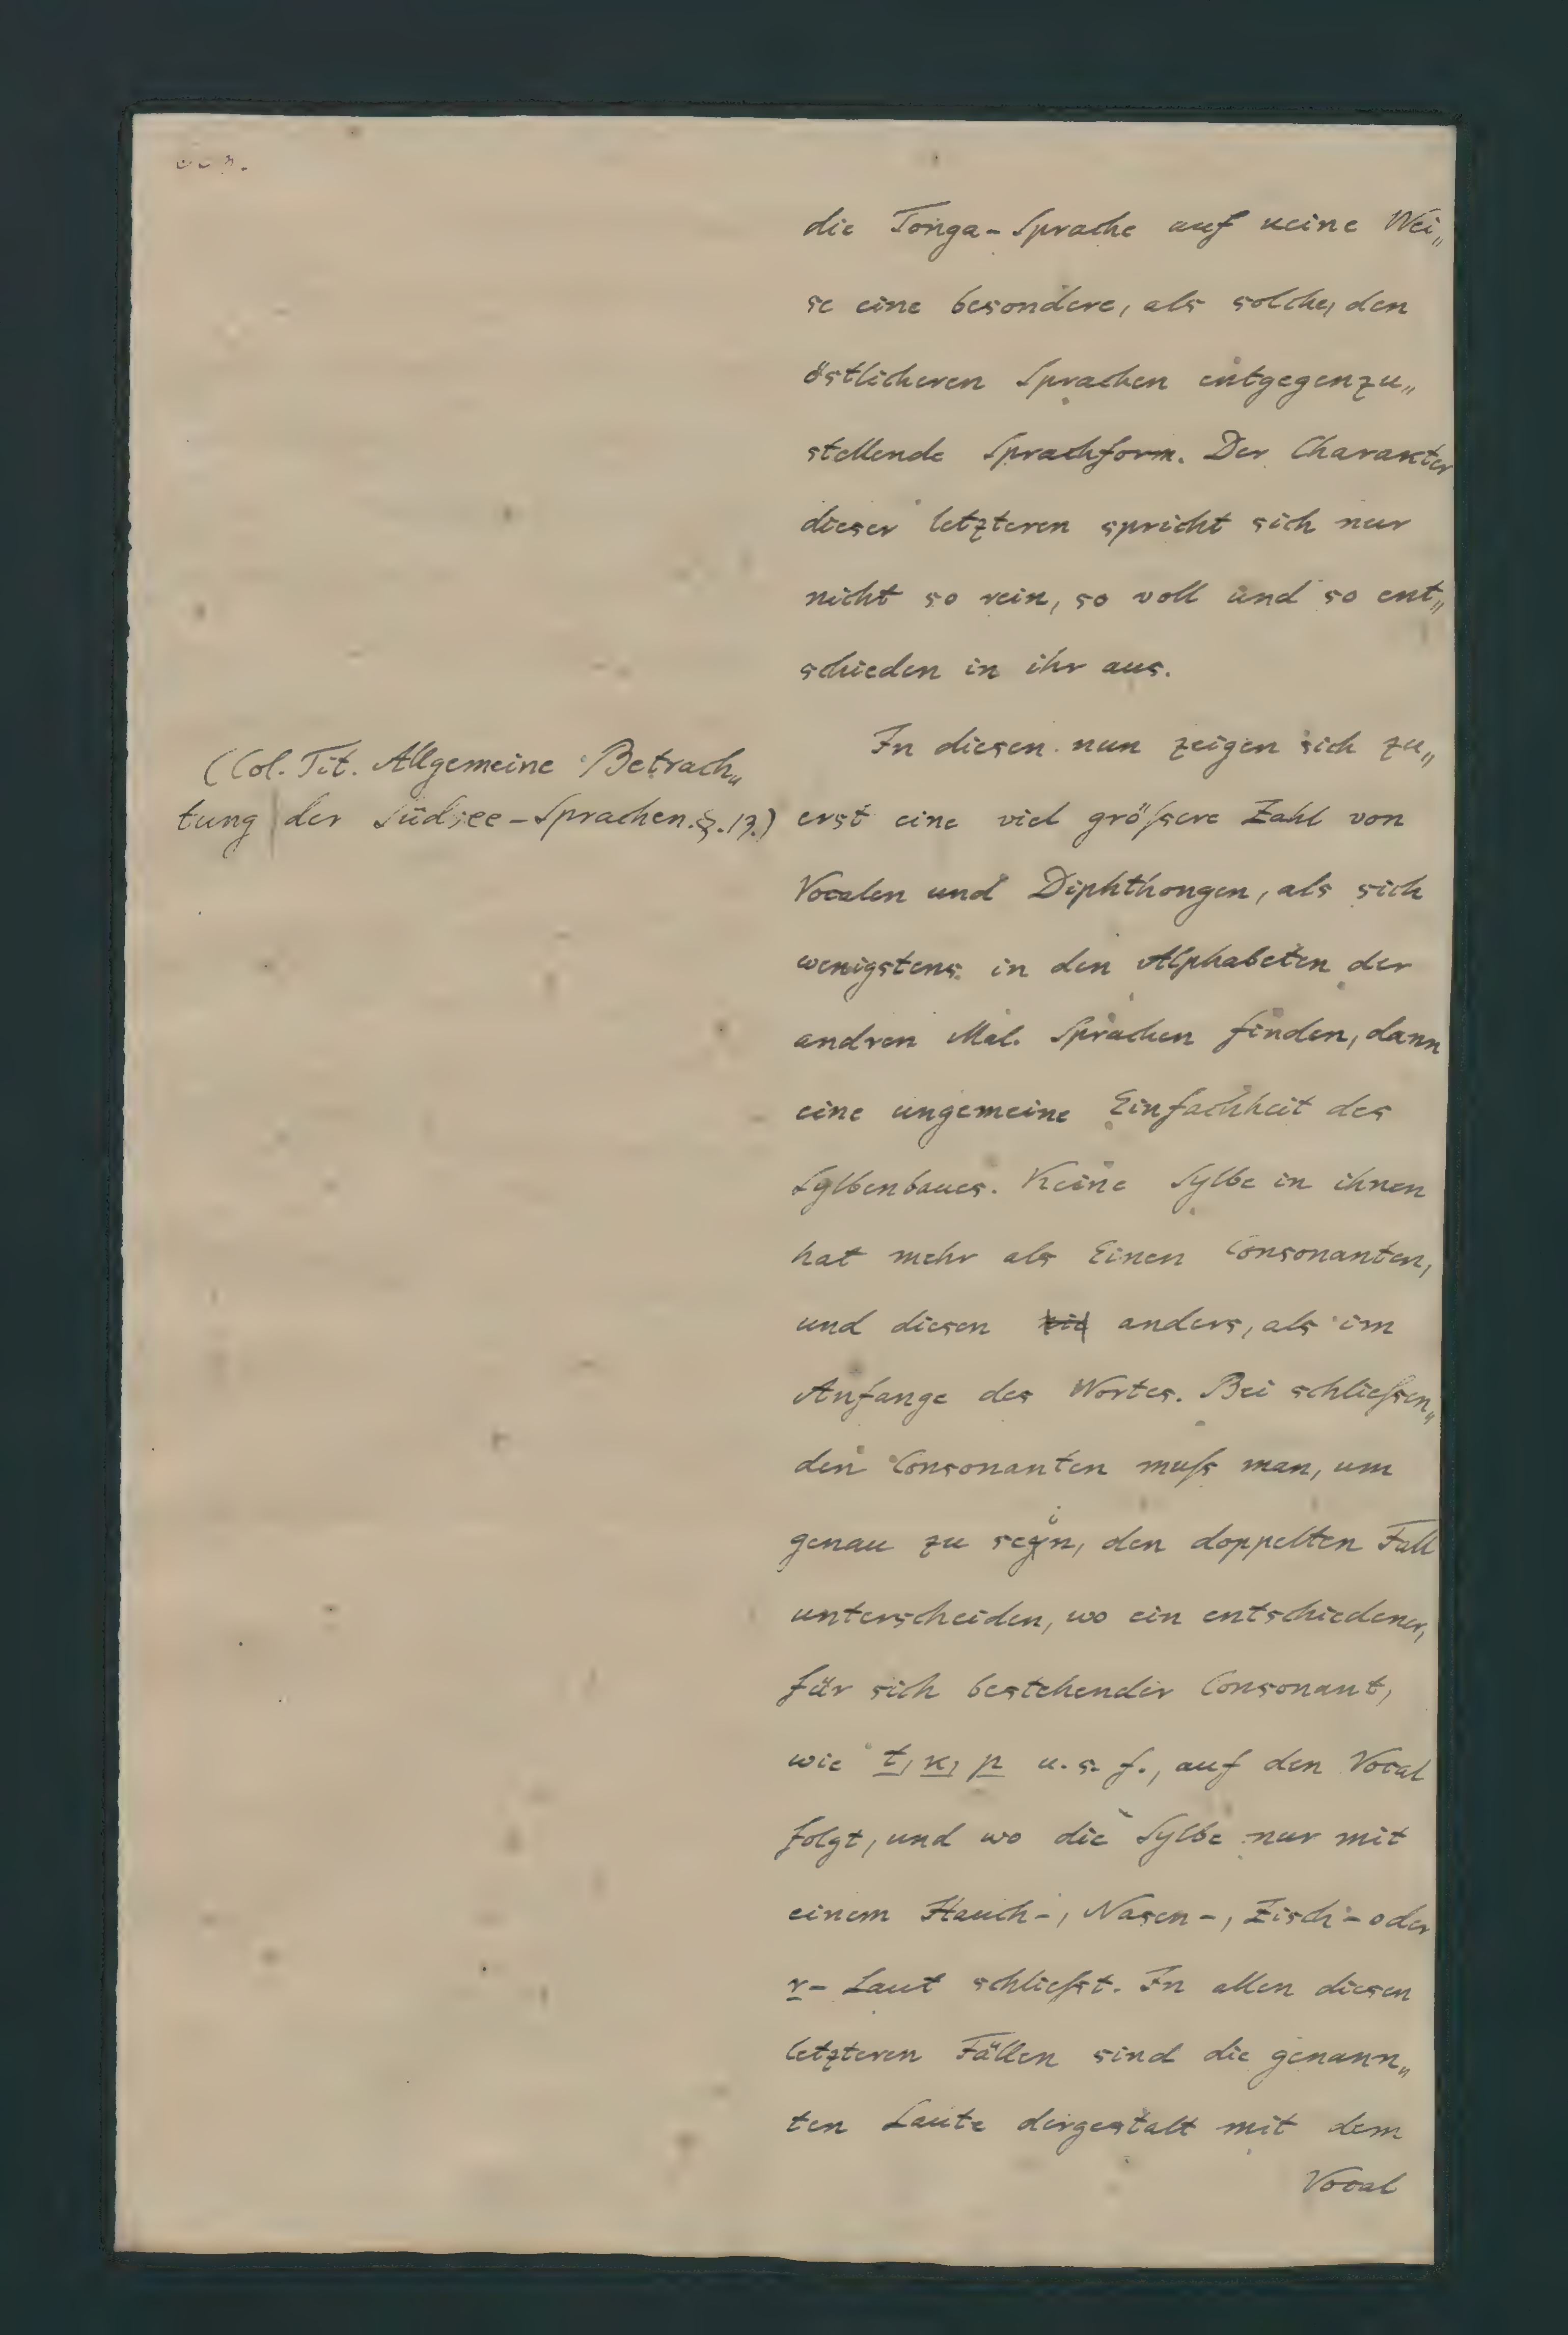 die Tonga-Sprache auf keine Wei„
se eine besondere, als solche, den
östlicheren Sprachen entgegenzu„
stellende Sprachform. Der Charakter
dieser letzteren spricht sich nur
nicht so rein, so voll und so ent„
schieden in ihr aus.
(Col. Tit. Allgemeine Betrach„
tung der Südsee-Sprachen. §. 13.)
In diesen nun zeigen sich zu„
erst eine viel größere Zahl von
Vocalen und Diphthongen, als sich
wenigstens in den Alphabeten der
andren Mal. Sprachen finden, dann
eine ungemeine Einfachheit des
Sylbenbaues. Keine Sylbe in ihnen
hat mehr als Einen Consonanten,
und diesen anders, als im
Anfange des Wortes. Bei schließen„
den Consonanten muß man, um
genau zu sein, den doppelten Fall
unterscheiden, wo ein entschiedener,
für sich bestehender Consonant,
wie t, k, p u. s. f., auf den Vocal
folgt, und wo die Sylbe nur mit
einem Hauch-, Nasen-, Zisch- oder
r-Laut schließt. In allen diesen
letzteren Fällen sind die genann„
ten Laute dergestalt mit dem
Vocal